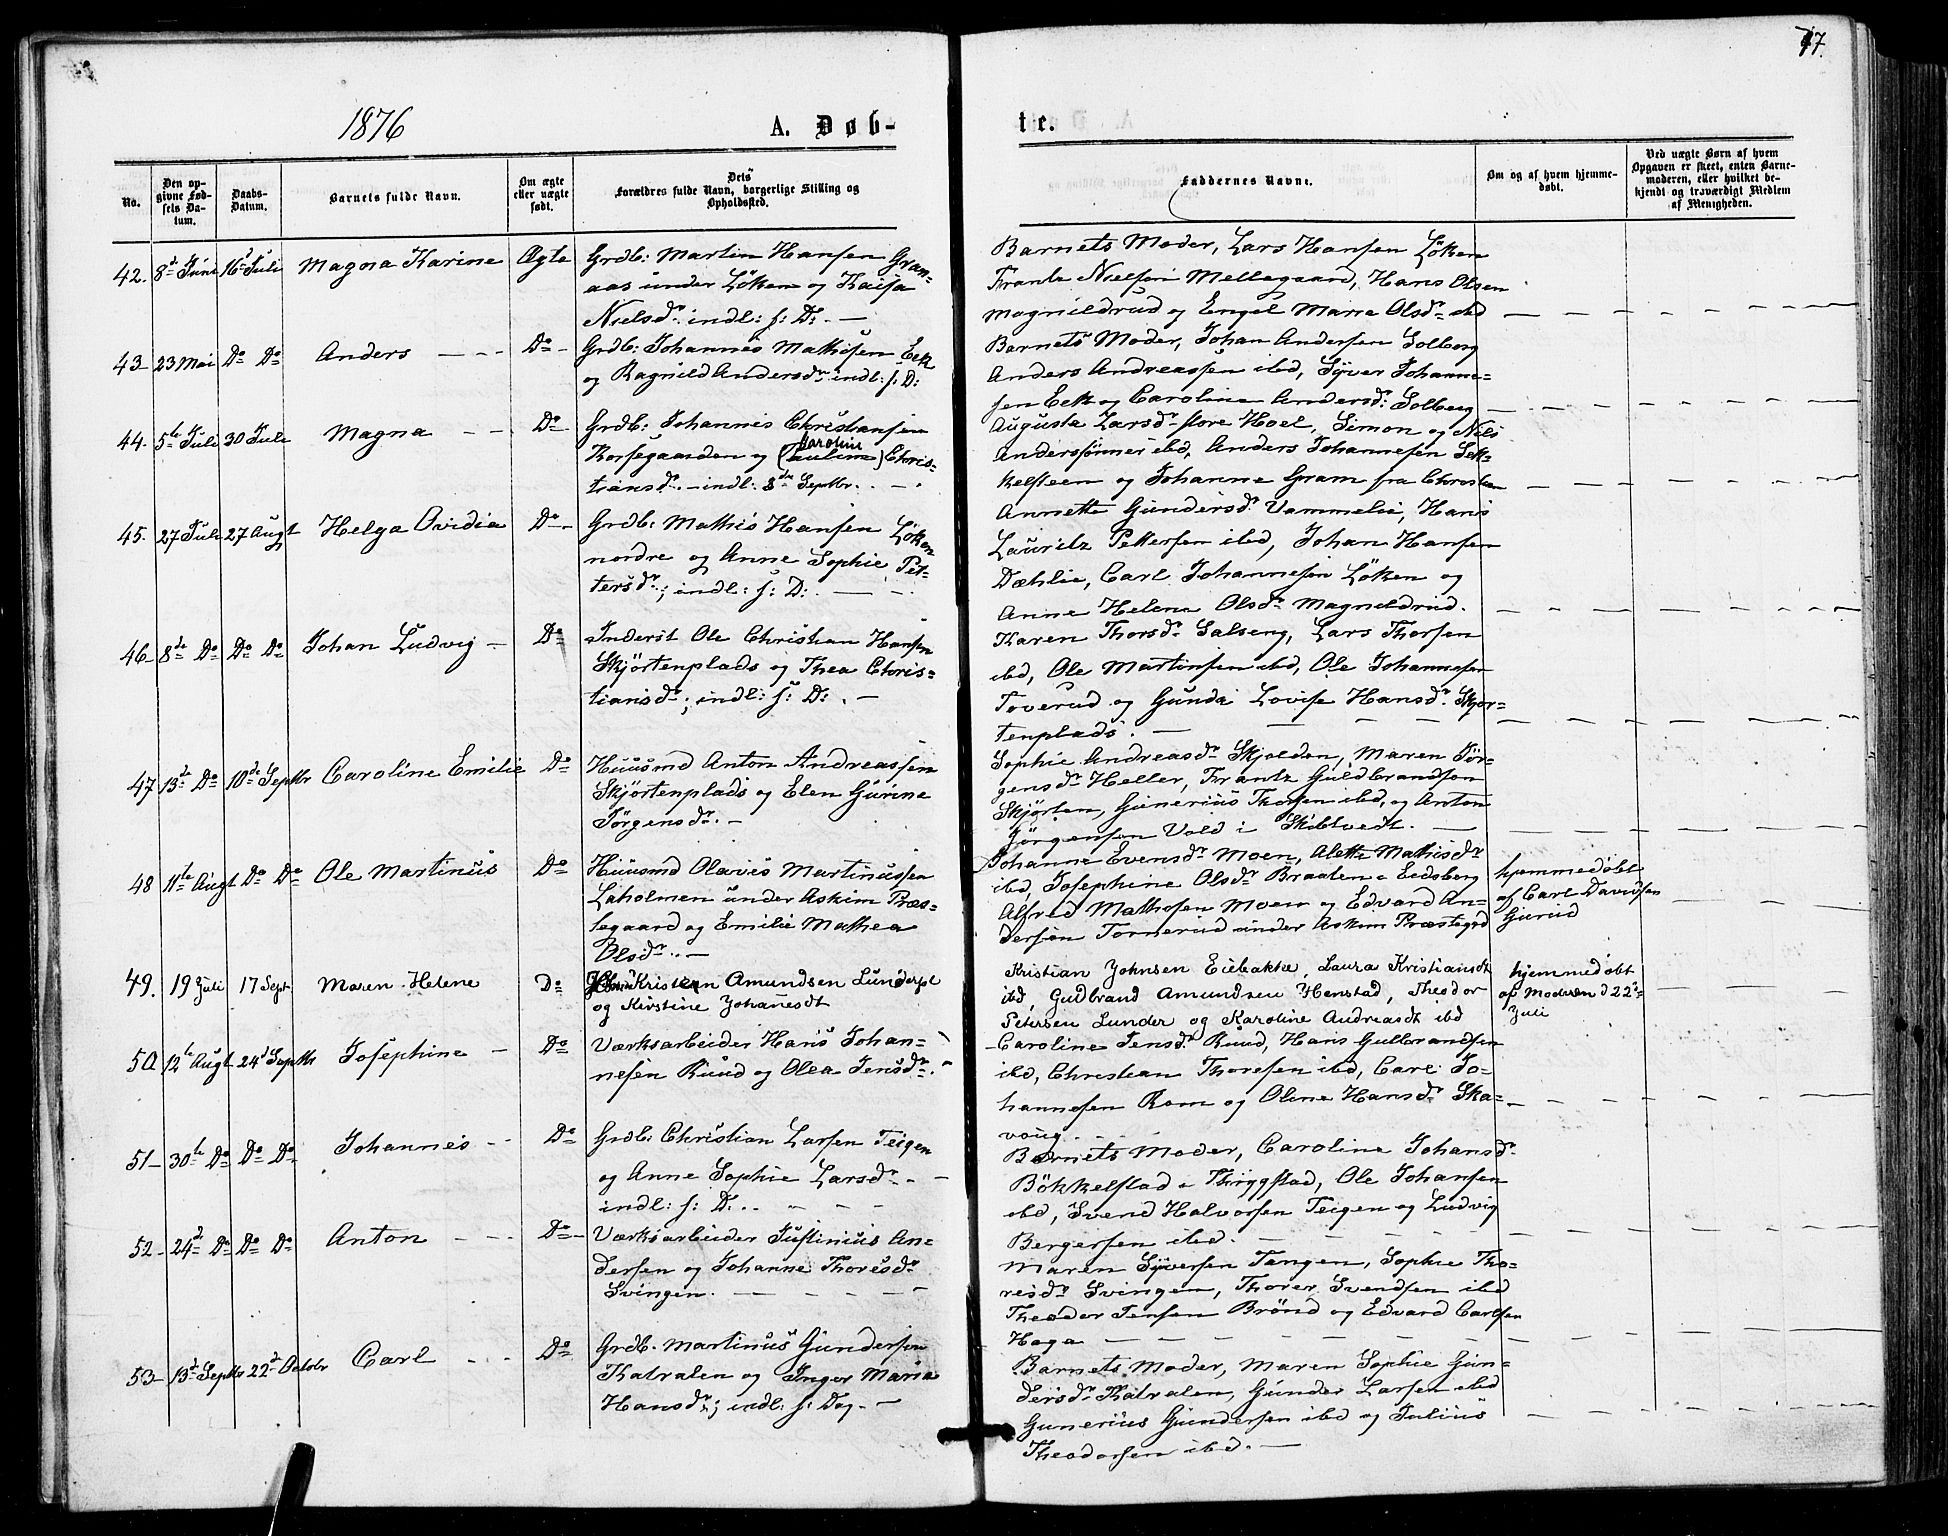 47.
1876
A. Døb-
te.
No.
Den op-
givne Fød-
sels Da-
tum.
Daabs-
Datum.
Barnets fulde Navn.
Om ægte
eller uægte
født.
Dets
Forældres fulde Navn, borgerlige Stilling og
Opholdssted.
Faddernes Navne.
Om og af hvem hjemme-
døbt.
Ved uægte Børn af hvem
Opgaven er skeet, enten Barne-
moderen, eller hvilket be-
kjendt og troværdigt Medlem
af Menigheden.
42. 8d Juni 16d Juli Magna Karine Ægte Grdb: Martin Hansen Gran-
aas under Löken og Kaisa
Nielsdr. indl: f: D: —
Barnets Moder, Lars Hansen Löken
Frantz Nielsen Mellegaard, Hans Olsen
Magnildrud og Engel Marie Olsdr ibd
43– 23 Mai Do Do Anders Do Grdb: Johannes Mathisen Eek
og Ragnild Andersdr. indl: f: D:
Barnets Moder, Johan Andersen Solberg
Anders Andreassen ibd, Syver Johanne-
sen Eek og Caroline Andersdr Solberg
44. 5te Juli 30 Juli Magna Do Grdb: Johannes Christiansen
Korsegaarden og (Pauline) Karoline Chris-
tiansdr. – indl: 8de Septbr.
Auguste Larsdr store Hoel, Simon og Nils
Anderssönner ibd, Anders Johannesen Sek-
kelsteen og Johanne Gram fra Christian
45. 27 Juli 27 Augt Helga Ovidia Do Grdb: Mathis Hansen Löken
nordre og Anne Sophie Pet-
tersdr; indl: f: D:
Annette Gundersdr Vammelie, Hans
Lauritz Pettersen ibd, Johan Hansen
Dæhlie, Carl Johannesen Löken og
Anne Helene Olsdr Magnildrud.
46– 8de Do Do Do Johan Ludvig Do Inderst Ole Christian Hansen
Skjörtenplads og Thea Chris-
tiansdr; indl: f: D:
Karen Thorsdr Salseng, Lars Thorsen
ibd, Ole Martinsen ibd, Ole Johannesen
Toverud og Gunda Lovise Hansdr Skjör-
tenplads.
47 13de Do 10de Septbr Caroline Emilie Do Huusmd Anton Andreassen
Skjörtenplads og Elen Gurine
Jörgensdr.
Sophie Andreasdr Skjolden, Maren Jör-
gensdr Heller, Frantz Guldbrandsen
Skjörten, Gunerius Thorsen ibd, og Anton
Jörgensen Vold i Skibtvedt.
48 11te Augt Do Do Ole Martinus Do Huusmd Olavus Martinussen
Laholmen under Askim Præs-
tegaard og Emilie Mathea
Olsdr.
Johanne Evensdr Moen, Alette Mathisdr
ibd, Josephine Olsdr Braaten i Eidsberg
Alfred Mathisen Moen og Edvard An-
dersen Tornerud under Askim Præstegrd
hjemmedöbt
af Carl Davidsen
Gurud
49. 19 Juli 17 Sept Maren Helene Do Kristian Amundsen Lunderpl
og Kirstine Johanesdt
Kristian Johnsen Eiebakke, Laura Kristiansdt
ibd, Gudbrand Amundsen Henstad, Theodor
Petersen Lunder og Karoline Andreasdt ibd
hjemmedøbt
af Moderen d 22de
Juli
50 12te Augt 24d Septbr Josephine Do Værksarbeider Hans Johan-
nesen Ruud og Olea Jensdr.
Caroline Jensdr Ruud, Hans Gulbrandsen
ibd, Christian Thoresen ibd, Carl Jo-
hannesen Rom og Oline Hansdr Ska-
vang.
51– 30te Do Do Do Johannes Do Grdb: Christian Larsen Teigen
og Anne Sophie Larsdr.
indl: f: D:
Barnets Moder, Caroline Johansdr
Bökkelstad i Thrygstad, Ole Johansen
ibd, Svend Halvorsen Teigen og Ludvig
Bergersen ibd.
52– 24d Do Do Do Anton Do Værksarbeider Justinius An-
dersen og Johanne Thoresdr
Svingen.
Maren Syversen Tangen, Sophie Tho-
resdr Svingen, Thorer Svendsen ibd
Theodor Jensen Brönd og Edvard Carlsen
Haga
53– 13d Septbr 22d Octobr Carl Do Grdb. Martinus Gundersen
Katralen og Inger Maria
Hansdr; indl: f: Dag.
Barnets Moder, Maren Sophie Gun-
dersdr Katralen, Gunder Larsen ibd
Gunerius Gundersen ibd og Julius
Theodorsen ibd.